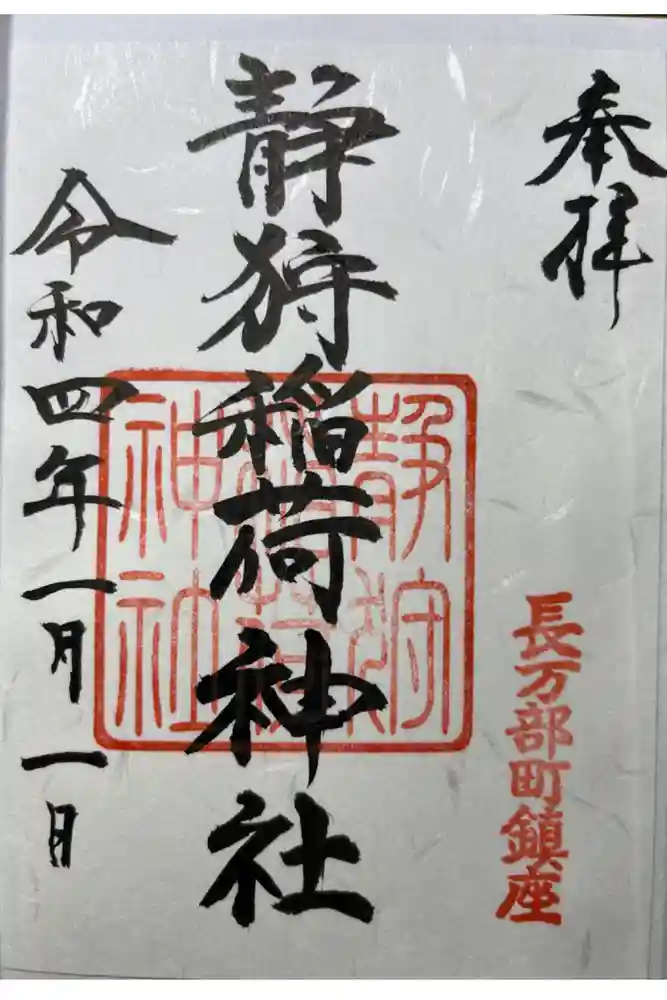 奉拝
長万部町鎮座
静狩稲荷神社
静狩
稲荷
神社
令和四年一月一日